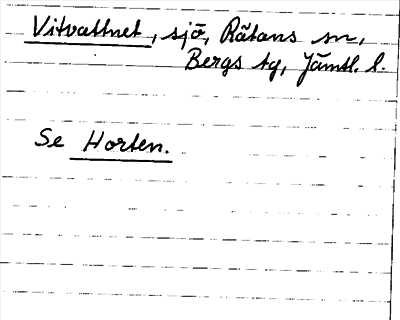 Vitvattnet, sjö, Rätans sn,
Bergs tg, Jämtl. l.
Se Horten.